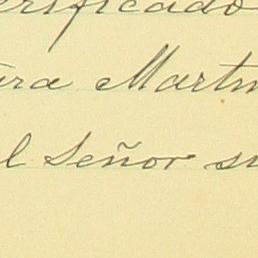 ertificado
ura Martin
l Señor su